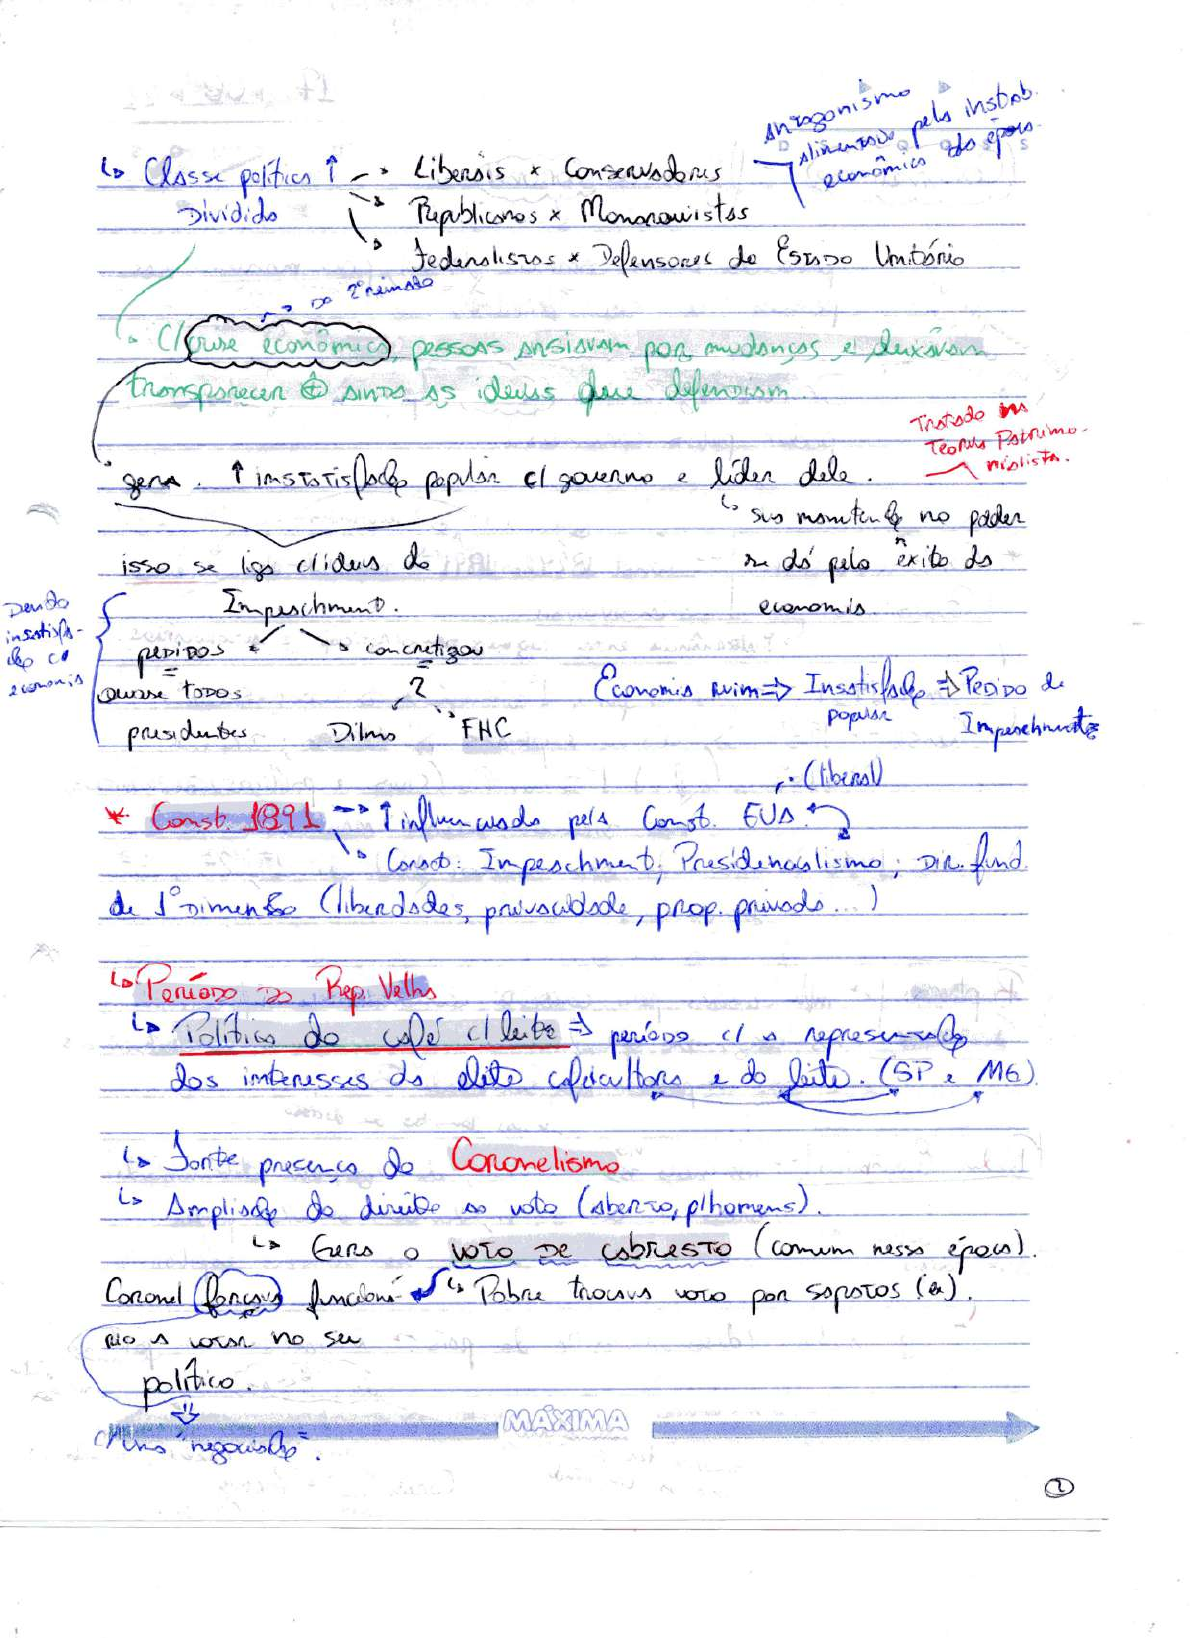 Antagonismo
alimentado pela instab.
econômica da época
↳ Classe política ↑ → Liberais x Conservadores
Dividida → Republicanos x Monarquistas
→ Federalistas x Defensores do Estado Unitário
→ Do 2º reinado
• C/ crise econômica, pessoas ansiavam por mudanças e deixavam
transparecer + ainda as ideias que defendiam.
Tratado na
Teoria Patrimo-
nialista.
gera. ↑ instatisfação popular c/ governo e líder dele.
↳ sua manutenção no poder
isso se liga c/ ideia do se dá pelo êxito da
Impeachment. economia
Devido
insatisfa-
ção c/
economia
pedidos concretizou
=
quase todos 2
presidentes Dilma FHC
Economia ruim ⇒ Insatisfação ⇒ Pedido de
popular Impeachment
(liberal)
* Const. 1891 → ↑ influenciada pela Const. EUA.
↳ Caract: Impeachment; Presidencialismo; Dir. fund.
de 1ª Dimensão (liberdades, privacidade, prop. privada...)
↳ Período da Rep. Velha
↳ Política do café c/ leite ⇒ período c/ a representação
dos interesses da elite cafeicultora e do leite. (SP e MG)
↳ Forte presença do Coronelismo
↳ Ampliação do direito ao voto (aberto, p/ homens).
↳ Gera o voto de cabresto (comum nessa época).
Coronel forçava funcioná- ↳ Pobre trocava voto por sapatos (ex).
rio a votar no seu
político.
C/ uma "negociação".
MÁXIMA
2